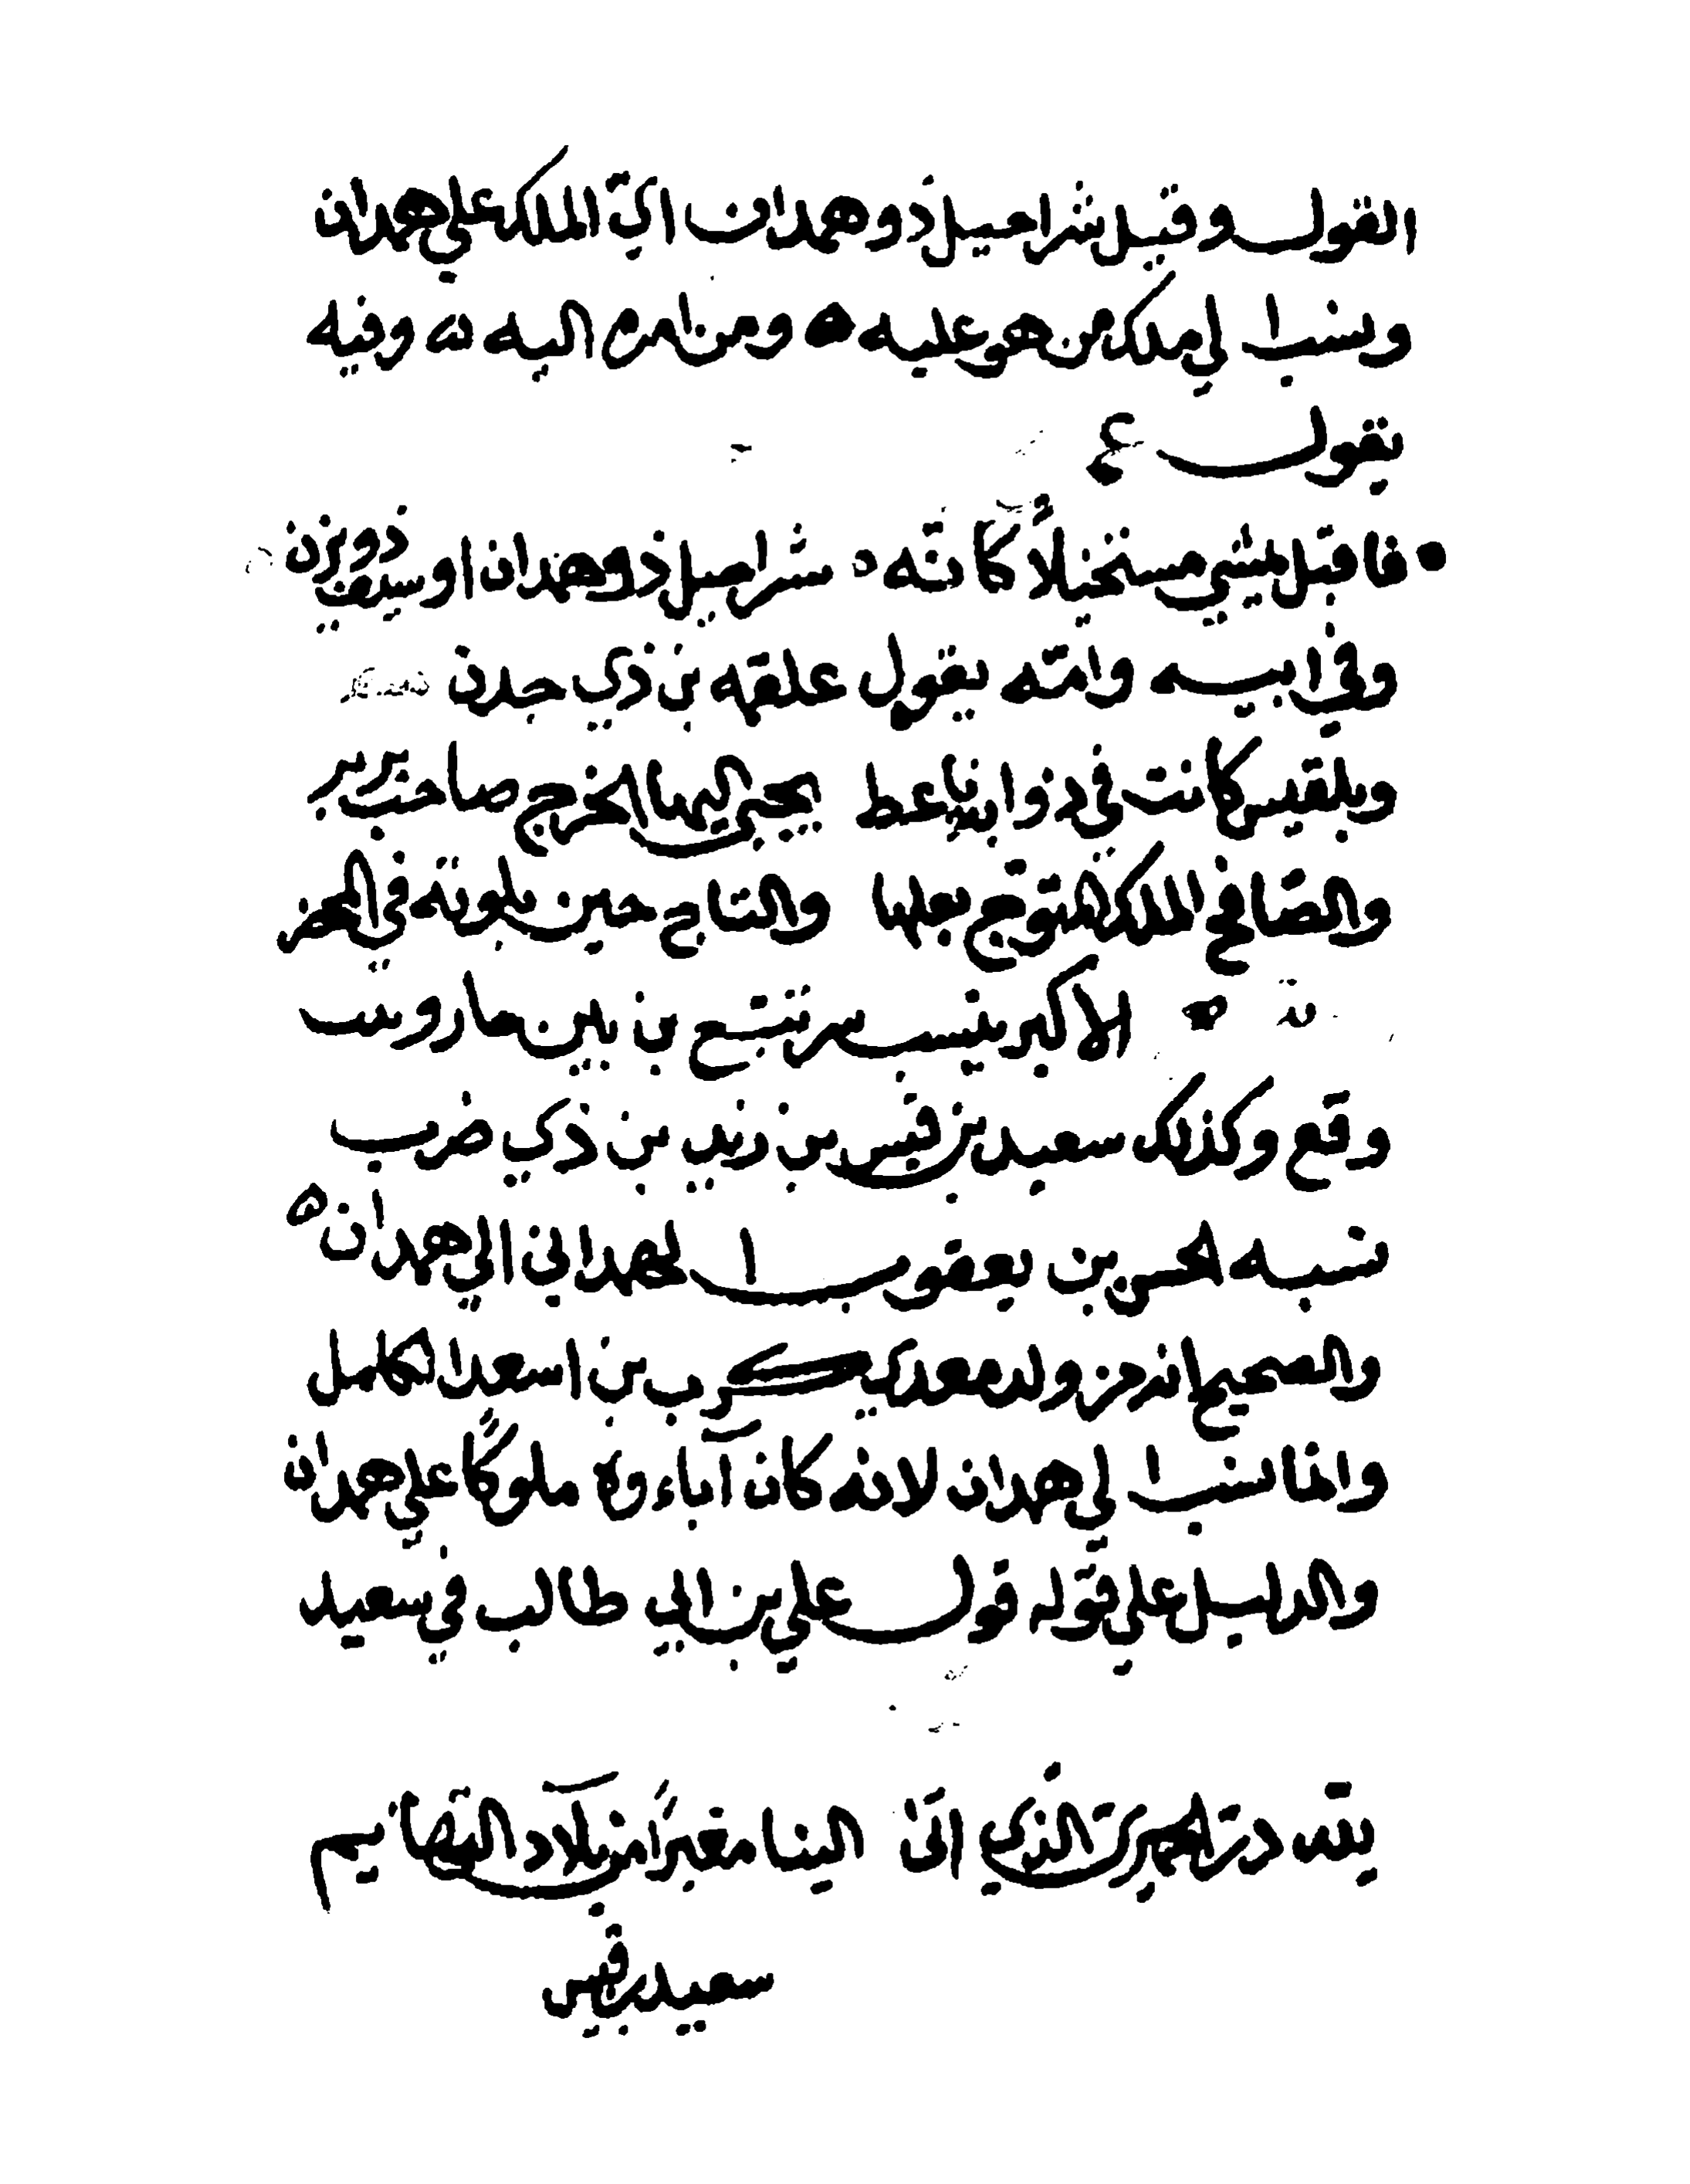 القول وقيل شراحيل ذو همدان اي الملك على همدان
ونسب الي ملك من هو عليه ومن امرم اليه له وفيه
يقول
فاقبل يمشي مستخيلاً كانه شراحيل ذو همدان او سيف ذو يزن
وفي ابيه وامه يقول علقمه بن ذي جدن
وبلقيس كانت في ذوابناعط يجبى اليها الخرج صاحب بربر
والملك المتوج بعلها والتاج حين يلويه في
الاكبر ينسب بتع بن
وقع وكذلك سعيد بن قيس بن زيد بن ذي ضرب
نسبه لحسن بن يعقوب الهمداني الي همدان
والصحيح انه من ولد معدي كرب بن اسعد الكامل
وانما نسب الي همدان لانه كان آباءوه ملوكًا علي همدان
والدليل علي قوله قول علي بن ابي طالب في سعيد
الحميري الذي اتى الينا مغيرًا من بلاد التهائيم
سعيد بن قيس